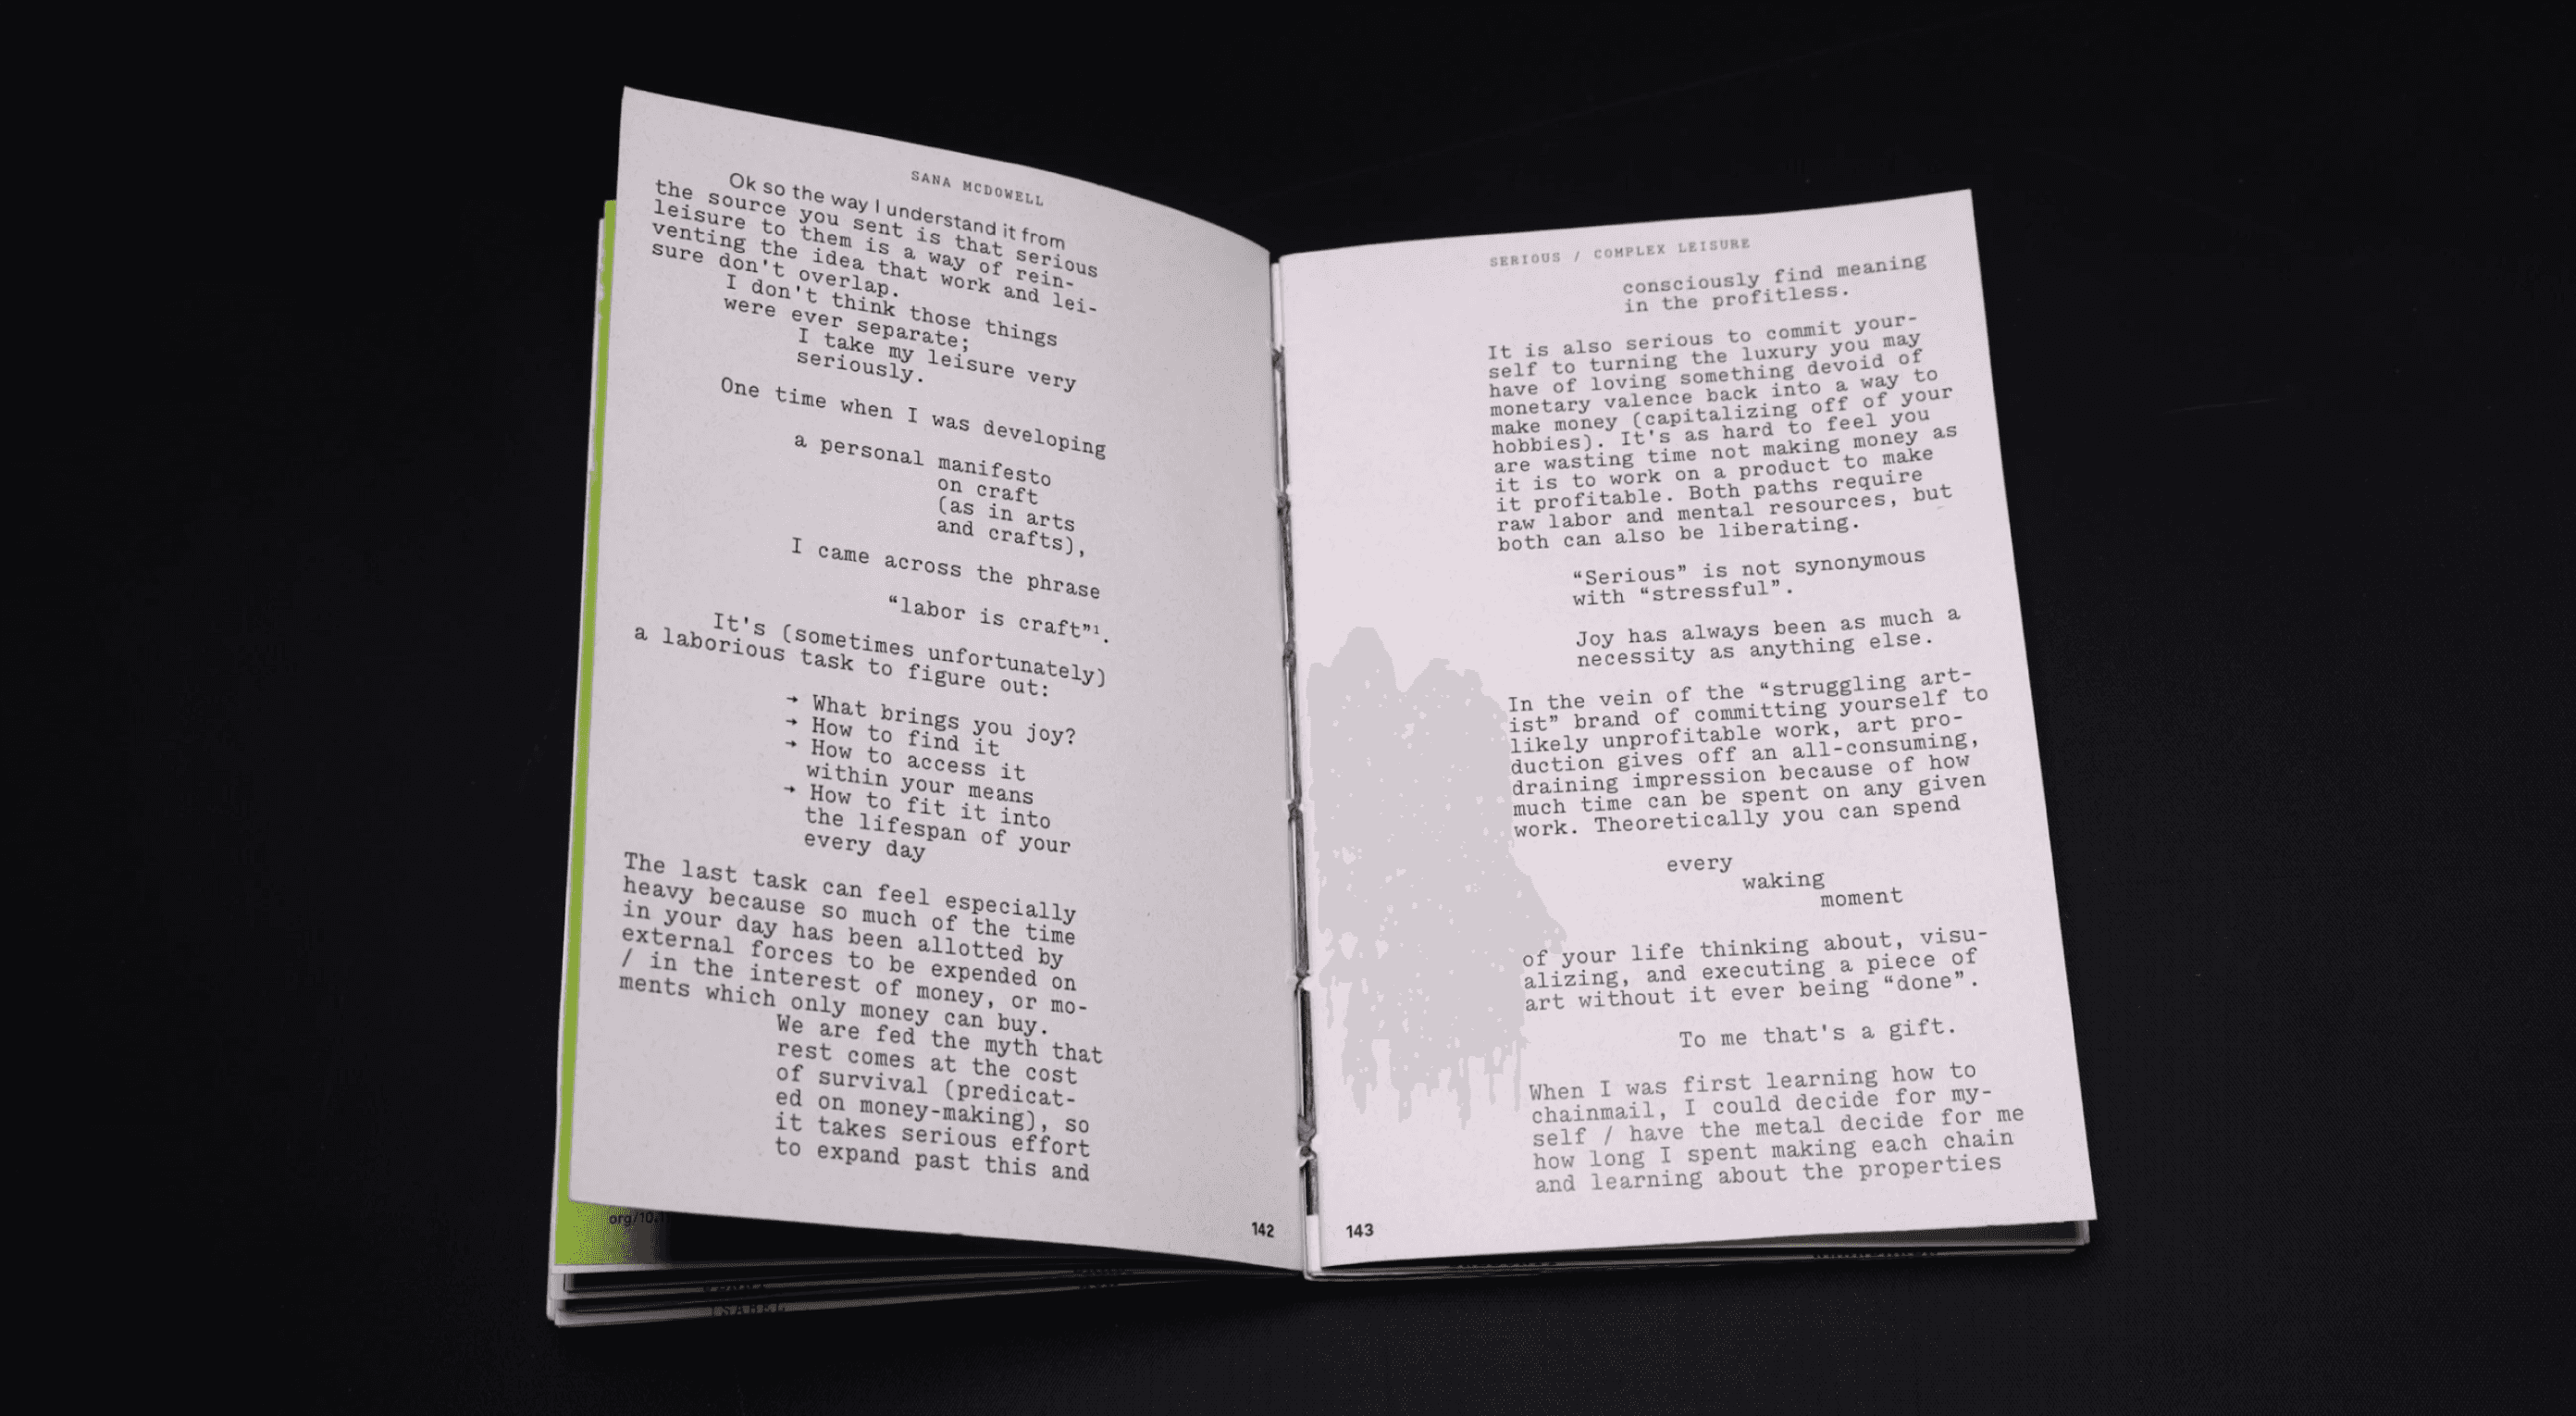 SANA MCDOWELL
Ok so the way I understand it from
the source you sent is that serious
leisure to them is a way of rein-
venting the idea that work and lei-
sure don't overlap.
I don't think those things
were ever separate;
I take my leisure very
seriously.
One time when I was developing
a personal manifesto
on craft
(as in arts
and crafts),
I came across the phrase
“labor is craft”¹.
It's (sometimes unfortunately)
a laborious task to figure out:
→ What brings you joy?
→ How to find it
→ How to access it
within your means
→ How to fit it into
the lifespan of your
every day
The last task can feel especially
heavy because so much of the time
in your day has been allotted by
external forces to be expended on
/ in the interest of money, or mo-
ments which only money can buy.
We are fed the myth that
rest comes at the cost
of survival (predicat-
ed on money-making), so
it takes serious effort
to expand past this and
142
SERIOUS / COMPLEX LEISURE
consciously find meaning
in the profitless.
It is also serious to commit your-
self to turning the luxury you may
have of loving something devoid of
monetary valence back into a way to
make money (capitalizing off of your
hobbies). It's as hard to feel you
are wasting time not making money as
it is to work on a product to make
it profitable. Both paths require
raw labor and mental resources, but
both can also be liberating.
“Serious” is not synonymous
with “stressful”.
Joy has always been as much a
necessity as anything else.
In the vein of the “struggling art-
ist” brand of committing yourself to
likely unprofitable work, art pro-
duction gives off an all-consuming,
draining impression because of how
much time can be spent on any given
work. Theoretically you can spend
every
waking
moment
of your life thinking about, visu-
alizing, and executing a piece of
art without it ever being “done”.
To me that's a gift.
When I was first learning how to
chainmail, I could decide for my-
self / have the metal decide for me
how long I spent making each chain
and learning about the properties
143
ISABEL